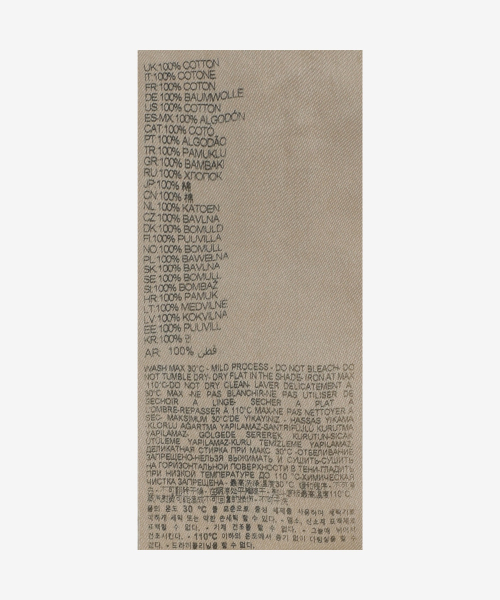 UK:100% COTTON
IT:100% COTONE
FR:100% COTON
DE:100% BAUMWOLLE
US:100% COTTON
ES-MX:100% ALGODÓN
CAT:100% COTÓ
PT:100% ALGODÃO
TR:100% PAMUKLU
GR:100% BAMBAKI
RU:100% ХЛОПОК
JP:100% 綿
CN:100% 棉
NL:100% KATOEN
CZ:100% BAVLNA
DK:100% BOMULD
FI:100% PUUVILLA
NO:100% BOMULL
PL:100% BAWEŁNA
SK:100% BAVLNA
SE:100% BOMULL
SI:100% BOMBAŽ
HR:100% PAMUK
LT:100% MEDVILNĖ
LV:100% KOKVILNA
EE:100% PUUVILL
KR:100% 면
AR: 100% قطن
WASH MAX 30°C - MILD PROCESS - DO NOT BLEACH- DO
NOT TUMBLE DRY- DRY FLAT IN THE SHADE- IRON AT MAX
110°C-DO NOT DRY CLEAN- LAVER DELICATEMENT A
30°C MAX -NE PAS BLANCHIR-NE PAS UTILISER DE
SECHOIR A LINGE- SECHER A PLAT A
L'OMBRE-REPASSER A 110°C MAX-NE PAS NETTOYER A
SEC- MAKSIMUM 30°C'DE YIKAYINIZ - HASSAS YIKAMA
KLORLU AGARTMA YAPILAMAZ-SANTRIFUJLU KURUTMA
YAPILAMAZ- GOLGEDE SEREREK KURUTUN-SICAK
UTULEME YAPILAMAZ-KURU TEMIZLEME YAPILAMAZ-
ДЕЛИКАТНАЯ СТИРКА ПРИ МАКС 30°C -ОТБЕЛИВАНИЕ
ЗАПРЕЩЕНО-НЕЛЬЗЯ ВЫЖИМАТЬ И СУШИТЬ-СУШИТЬ
НА ГОРИЗОНТАЛЬНОЙ ПОВЕРХНОСТИ В ТЕНИ-ГЛАДИТЬ
ПРИ НИЗКОЙ ТЕМПЕРАТУРЕ ДО 110 °C-ХИМИЧЕСКАЯ
ЧИСТКА ЗАПРЕЩЕНА -
물의 온도 30 °C 를 표준으로 중성 세제를 사용하여 세탁기로
약하게 세탁 또는 약한 손세탁 할 수 있다. - 염소, 산소계 표백제로
표백할 수 없다. - 기계 건조를 할 수 없다. - 그늘에 뉘어서
건조시킨다. - 110°C 이하의 온도에서 증기 없이 다림질을 할 수
있다. - 드라이클리닝을 할 수 없다.